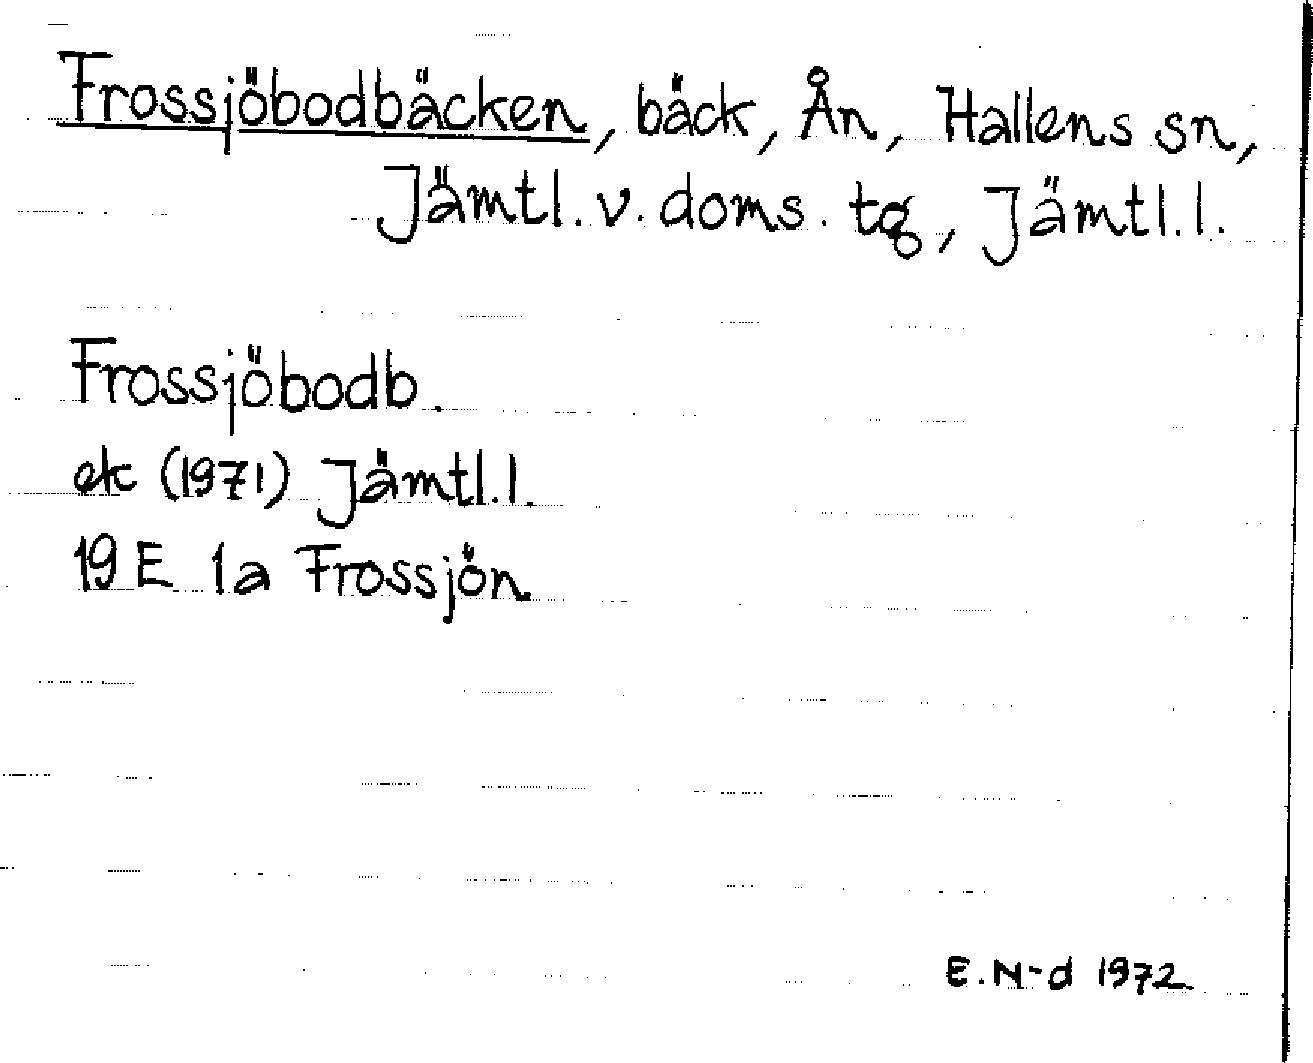 Frossjöbodbäcken, bäck, Ån, Hallens sn,
Jämtl. v. doms. tg, Jämtl. l.
Frossjöbodb.
ek (1971) Jämtl. l.
19 E 1a Frossjön
E. N-d 1972